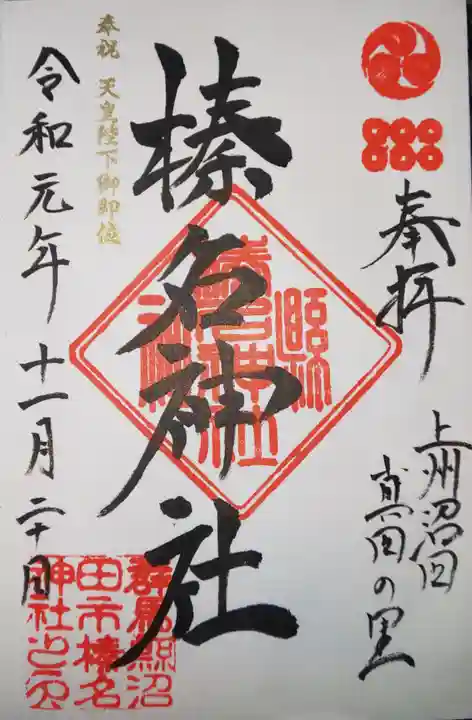 奉拝
上州沼田
真田の里
榛名神社
奉祝 天皇陛下御即位
令和元年十一月二十日
群馬縣沼
田市榛名
神社之印